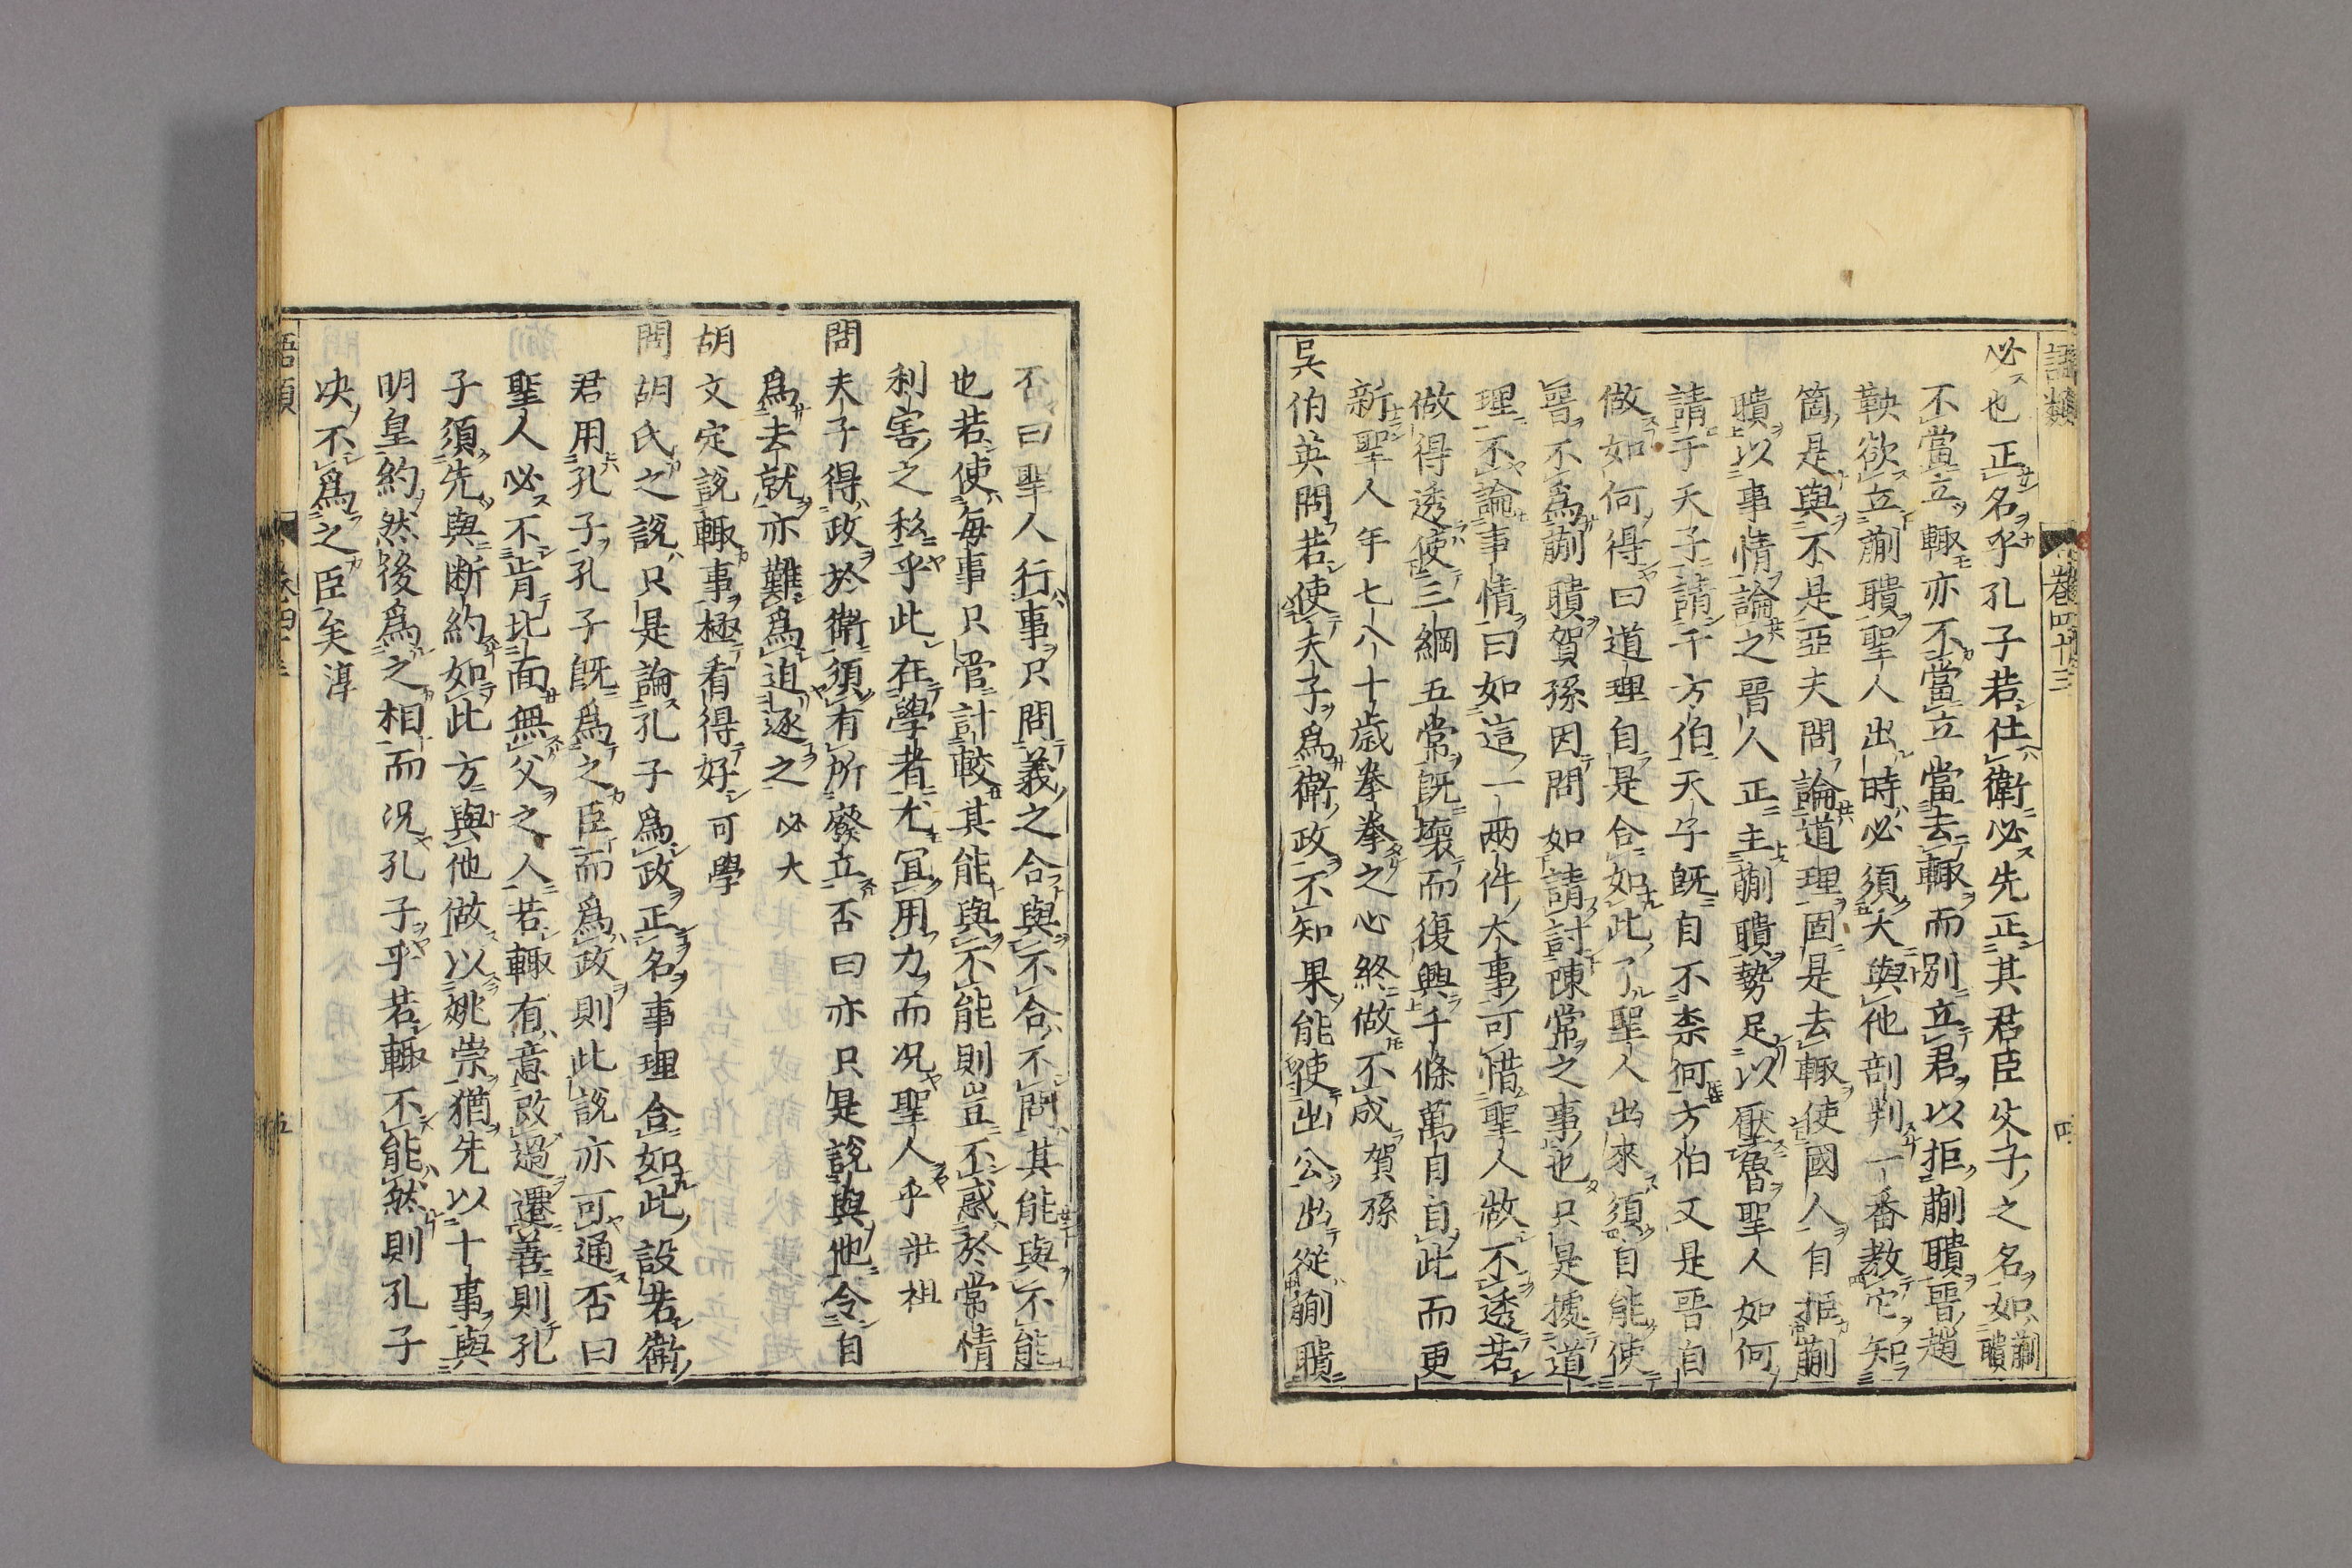 語類
卷四十三
四
必也正名乎孔子若仕衛必先正其君臣父子之名如蒯聵
不當立輙亦不當立當去輙而別立君以拒蒯聵晉趙
鞅欲立蒯聵聖人出時必須大與他剖判一番教它知
箇是與不是亞夫問論道理固是去輙使國人自拒蒯
聵以事情論之晉人正主蒯聵勢足以壓魯聖人如何
請于天子請于方伯天子既自不柰何方伯又是晉自
做如何得曰道理自是合如此了聖人出來須自能使
晉不爲蒯聵賀孫因問如請討陳常之事也只是據道
理不論事情曰如這一兩件大事可惜聖人做不透若
做得透使三綱五常既壞而復興千條萬目自此而更
新聖人年七八十歲拳拳之心終做不成賀孫
吳伯英問若使夫子爲衛政不知果能使出公出從蒯聵
否曰聖人行事只問義之合與不合不問其能與不能
也若使每事只管計較其能與不能則豈不惑於常情
利害之私乎此在學者尤冝用力而况聖人乎壯祖
問夫子得政於衛須有所廢立否曰亦只是說與他令自
爲去就亦難爲迫逐之必大
胡文定說輙事極看得好可學
問胡氏之說只是論孔子爲政正名事理合如此設若衛
君用孔子孔子既爲之臣而爲政則此說亦可通否曰
聖人必不肯北面無父之人若輙有意改過遷善則孔
子須先與断約如此方與他做以姚崇猶先以十事與
明皇約然後爲之相而况孔子乎若輙不能然則孔子
决不爲之臣矣淳
語類
卷四十三
五